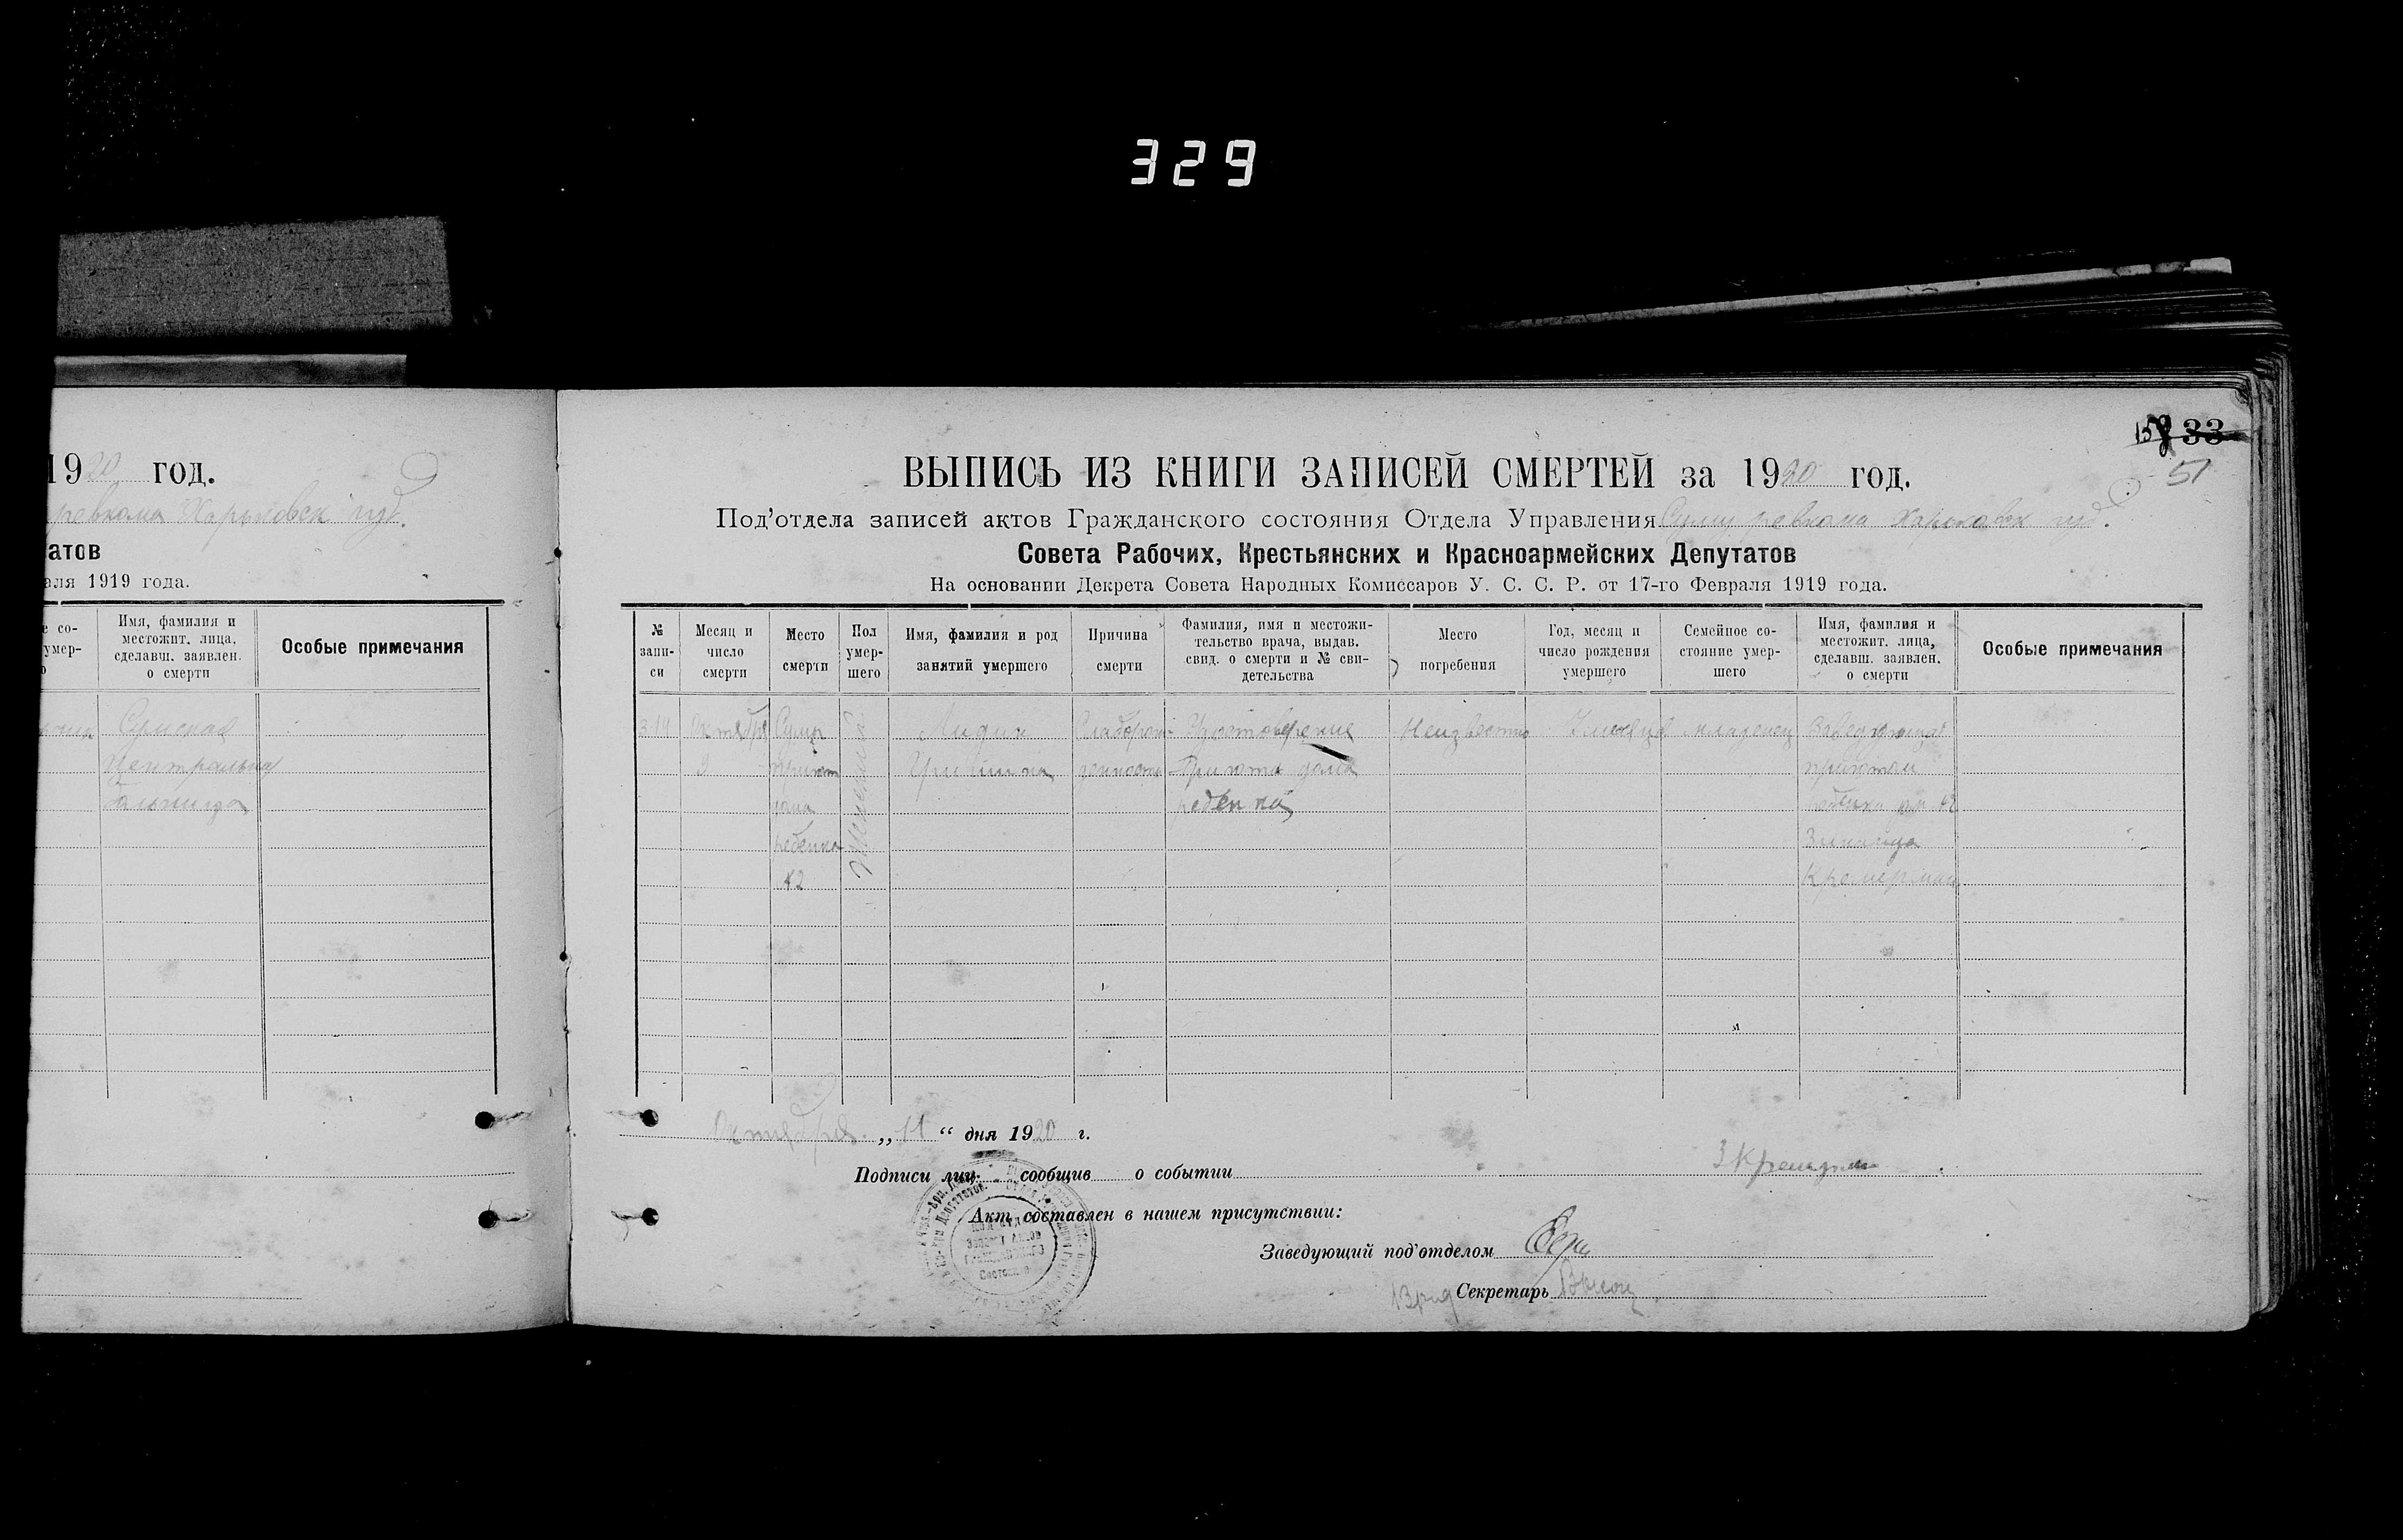 329
1920 год.
ревкома Харьковск губ.
атов
аля 1919 года.
е со-
умер-
о
Имя, фамилия и
местожит. лица,
сделавш. заявлен.
о смерти
Особые примечания
Сумская
Центральная
больница
33
51
ВЫПИСЬ ИЗ КНИГИ ЗАПИСЕЙ СМЕРТЕЙ за 1920 год.
Под'отдела записей актов Гражданского состояния Отдела Управления Сумы ревкома Харьковск губ.
Совета Рабочих, Крестьянских и Красноармейских Депутатов
На основании Декрета Совета Народных Комиссаров У. С. С. Р. от 17-го Февраля 1919 года.
№
запи-
си
Месяц и
число
смерти
Место
смерти
Пол
умер-
шего
Имя, фамилия и род
занятий умершего
Причина
смерти
Фамилия, имя и местожи-
тельство врача, выдав.
свид. о смерти и № сви-
детельства
Место
погребения
Год, месяц и
число рождения
умершего
Семейное со-
стояние умер-
шего
Имя, фамилия и
местожит. лица,
сделавш. заявлен.
о смерти
Особые примечания
314
Октября
9
Сумы
приют
дома
ребенка
№2
Женский
Лидия
Гришина
Слаборож-
денность
Удостоверение
Приюта дома
ребенка
Неизвестно
месяца
младенец
Заведующая
приютом
ребенка дом №2
Зинаида
Кремерман
Октября „11“ дня 1920 г.
Подписи лиц сообщив о событии З Кремерман
Акт составлен в нашем присутствии:
Заведующий под'отделом
Врид Секретарь
Записи Актов
Гражданского
Состояния